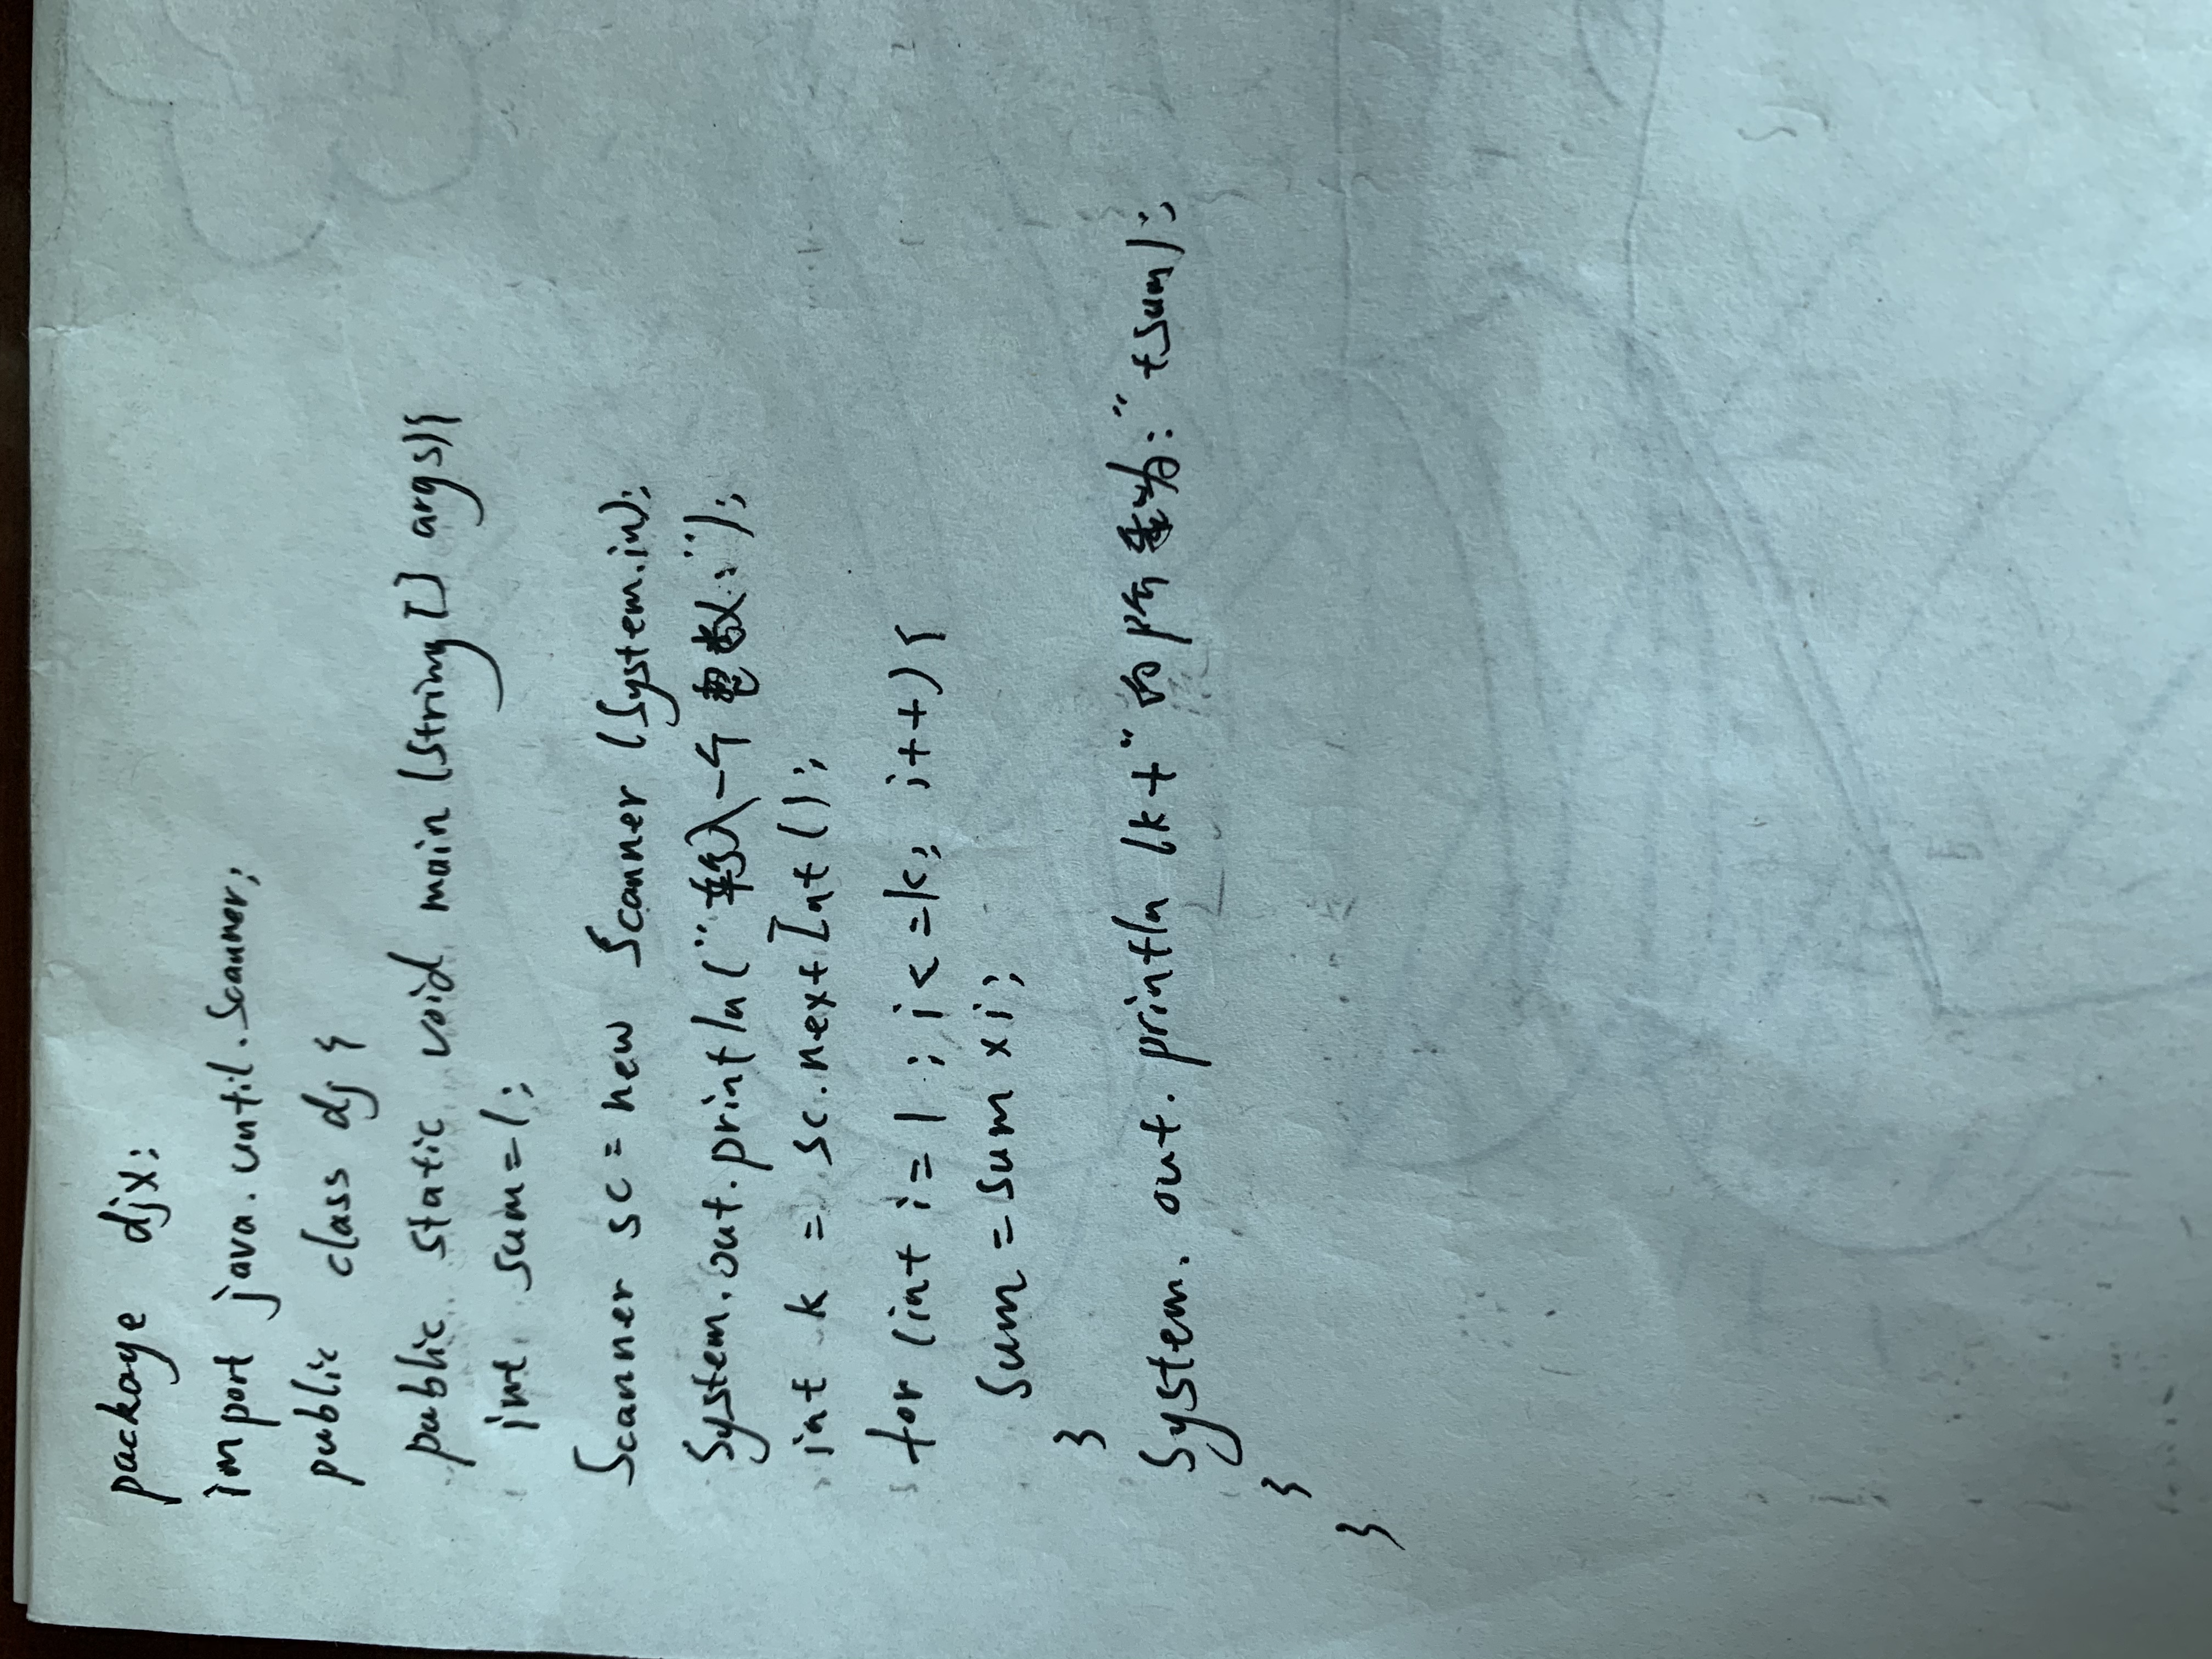 package djx;
import java.until.Scanner;
public class dj {
public static void main(String[] args){
int sum=1;
Scanner sc = new Scanner(System.in);
System.out.println("输入一个整数:");
int k = sc.nextInt();
for (int i=1; i<=k; i++){
Sum=Sum×i;
}
System.out.println(k+"的阶乘为:"+Sum);
}
}